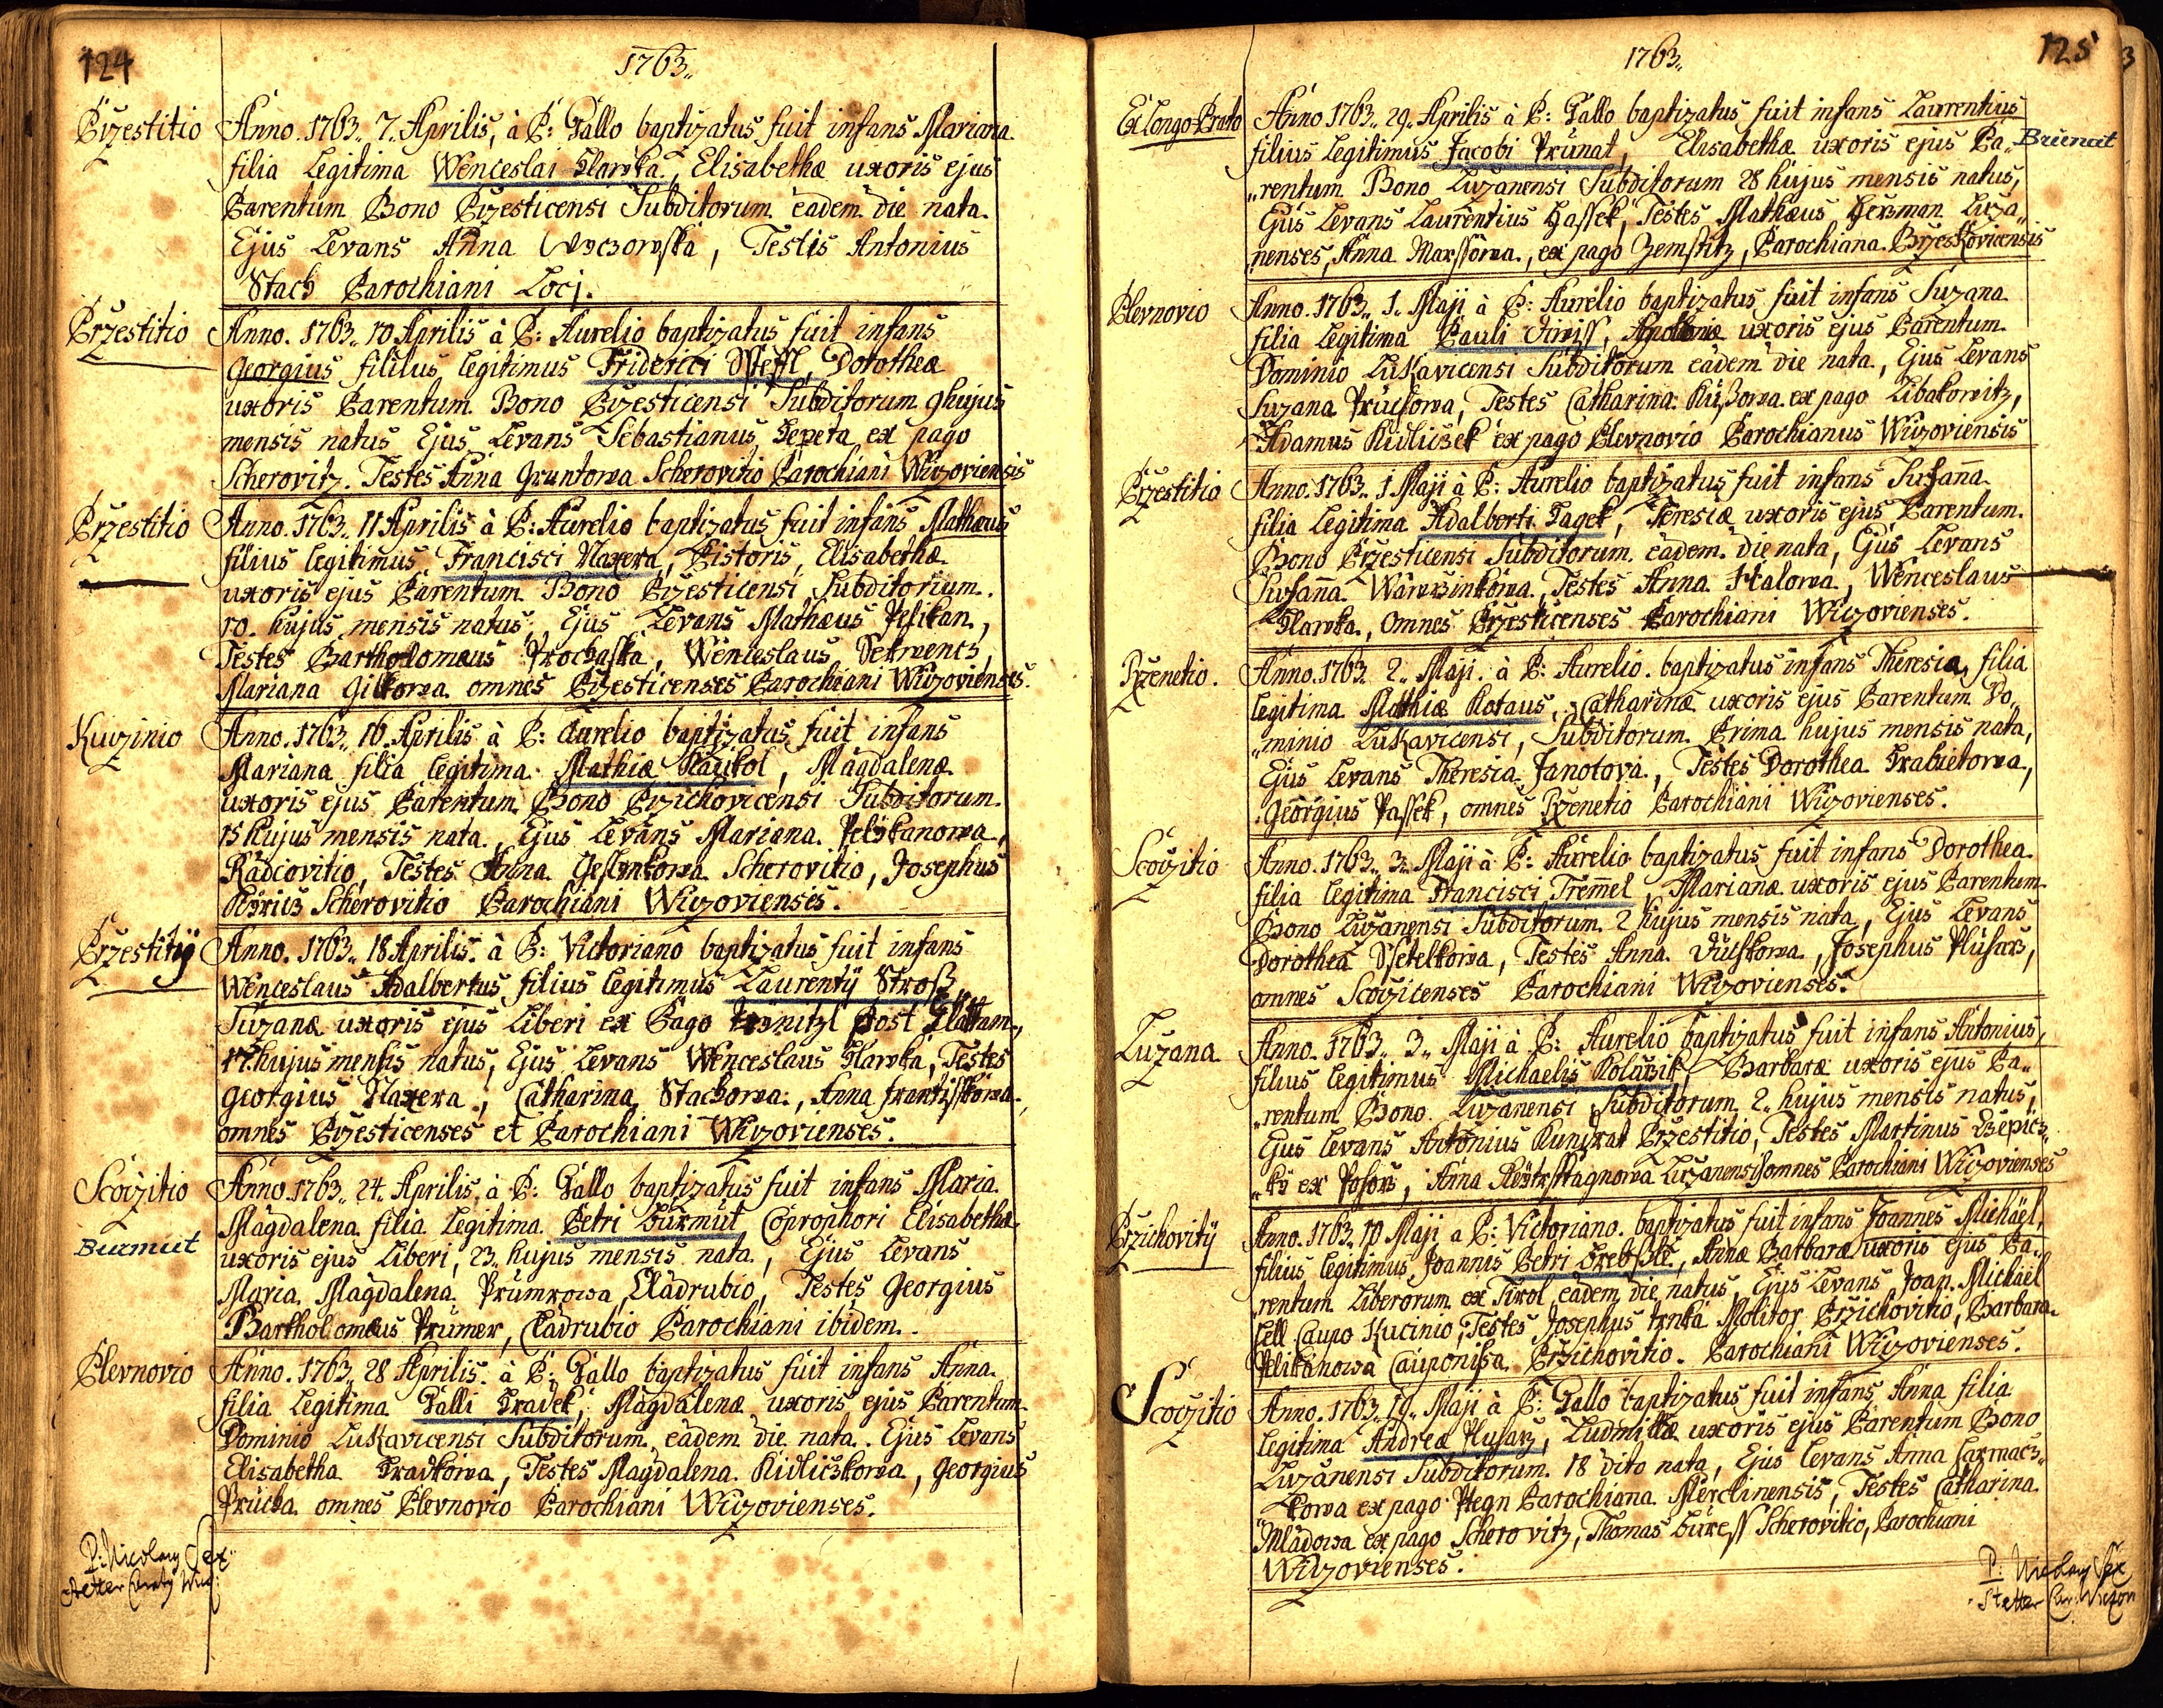 124
1763.
Przestitio
Anno. 1763. 7. Aprilis, à P: Gallo baptizatus fuit infans Mariana
filia Legitima Wenceslai Hlawka, Elisabethæ uxoris ejus
Parentum Bono Przesticensi Subditorum eadem die nata.
Ejus Levans Anna, Testis Antonius
Stach Parochiani Locj.
Przestitio
Anno. 1763. 10 Aprilis à P: Aurelio baptizatus fuit infans
Georgius fililus legitimus Friderici Steffl, Dorotheæ
uxoris Parentum Bono Przesticensi Subditorum 9 hujus
mensis natus Ejus Levans Sebastianus Sepeta ex pago
Scherovitz. Testes Anna Gruntowa Scherovitio Parochiani Wizoviensis
Przestitio
Anno. 1763. 11 Aprilis à P: Aurelio baptizatus fuit infans Mathæus
filius legitimus Francisci Naxera, Pistoris, Elisabethæ
uxoris ejus Parentum Bono Przesticensi Subditorium.
10. hujus mensis natus, Ejus Levans Mathæus Pelikan,
Testes Bartholomæus Prochaska, Wenceslaus
Mariana Gilkowa omnes Przesticenses Parochiani Wizovienses.
Kuczinio
Anno. 1763. 16. Aprilis à P: Aurelio baptizatus fuit infans
Mariana filia legitima Mathiæ Kaukol, Magdalenæ
uxoris ejus Parentum Bono Przichovicensi Subditorum.
15 hujus mensis nata. Ejus Levans Mariana Pelikanowa,
Radcovitio, Testes Anna Scherovitio, Josephus
Scherovitio Parochiani Wizovienses.
Przestitij
Anno. 1763. 18 Aprilis. à P: Victoriano baptizatus fuit infans
Wenceslaus Adalbertus filius legitimus Laurentij Stroß,
Suzanæ uxoris ejus Liberi ex Pago post Glattam,
17. hujus mensis natus, Ejus Levans Wenceslaus Hlawka, Testes
Georgius Naxera, Catharina Stachowa, Anna Frantzißkowa
omnes Przesticenses et Parochiani Wizovienses.
Scoczitio
Burmut
Anno. 1763. 24. Aprilis. à P: Gallo baptizatus fuit infans Maria
Magdalena filia Legitima Petri Burmut Coprophori Elisabethæ
uxoris ejus Liberi, 23. hujus mensis nata, Ejus Levans
Maria Magdalena Prumrowa Cladrubio, Testes Georgius
Bartholomæus Prumer, Cladrubio Parochiani ibidem.
Plevnovio
Anno. 1763. 28 Aprilis. à P: Gallo baptizatus fuit infans Anna
filia Legitima Galli Hradek, Magdalenæ uxoris ejus Parentum
Dominio Lukavicensi Subditorum, eadem die nata. Ejus Levans
Elisabetha Hradkowa, Testes Magdalena Kidliczkowa, Georgius
Prucha omnes Plevnovio Parochiani Wizovienses.
P: Nicolaus
Stetter
1763.
125
3
Ex Longo Prato
Anno 1763. 29. Aprilis à P: Gallo baptizatus fuit infans Laurentius
filius Legitimus Jacobi Prunat, Elisabethæ uxoris ejus Pa„
Brunat
„rentum Bono Luzanensi Subditorum 28 hujus mensis natus,
Ejus Levans Laurentius Hassek, Testes Mathæus Herzman Luza„
„nenses, Anna Marssowa, ex pago Zemstitz, Parochiana Brzeskovicensis
Plevnovio
Anno. 1763. 1. Maji à P: Aurelio baptizatus fuit infans Suzana
filia Legitima Pauli, Apoloniæ uxoris ejus Parentum
Dominio Lukavicensi Subditorum eadem die nata, Ejus Levans
Suzana Pruchowa, Testes Catharina ex pago Libakowitz,
Adamus Kidliczek ex pago Plevnovio Parochianus Wizoviensis
Przestitio
Anno. 1763. 1 Maji à P: Aurelio baptizatus fuit infans Susanna
filia Legitima Adalberti Hagek, Teresiæ uxoris ejus Parentum
Bono Przesticensi Subditorum eadem die nata, Ejus Levans
Susanna Wawrzinkowa, Testes Anna Kralowa, Wenceslaus
Hlawka, omnes Przesticenses Parochiani Wizovienses.
Pzenetio.
Anno. 1763. 2. Maji à P: Aurelio. baptizatus infans Theresia filia
legitima Mathiæ Kotaus, Catharinæ uxoris ejus Parentum Do„
„minio Lukavicensi, Subditorum Prima hujus mensis nata,
Ejus Levans Theresia Janotova, Testes Dorothea Hrabietowa,
Georgius Passek, omnes Pzenetio Parochiani Wizovienses.
Scoczitio
Anno. 1763. 3. Maji à P: Aurelio baptizatus fuit infans Dorothea
filia legitima Francisci Tremel Marianæ uxoris ejus Parentum
Bono Luzanensi Subditorum 2 hujus mensis nata, Ejus Levans
Dorothea Stetelkowa, Testes Anna, Josephus Husarz,
omnes Scoczicenses Parochiani Wizovienses.
Luzana
Anno. 1763. 3. Maji à P: Aurelio baptizatus fuit infans Antonius,
filius legitimus Michaelis Kolarzik, Barbaræ uxoris ejus Pa„
„rentum Bono Luzanensi Subditorum 2. hujus mensis natus,
Ejus Levans Antonius Kunzrat Przestitio, Testes Martinus
ex, Anna Luzanensis omnes Parochiani Wizovienses
Przichovitij
Anno. 1763. 10 Maji à P: Victoriano. baptizatus fuit infans Joannes Michael,
filius legitimus Joannis Petri, Annæ Barbaræ uxoris ejus Pa„
„rentum Liberorum ex Tirol, eadem die natus, Ejus Levans Joan. Michael
Caupo Kucinio, Testes Josephus Molitor Przichovitio, Barbara
Pelikanowa Cauponissa Przichovitio. Parochiani Wizovienses.
Scoczitio
Anno. 1763. 19. Maji à P: Gallo baptizatus fuit infans Anna filia
legitima Andreæ Husarz, Ludmillæ uxoris ejus Parentum Bono
Luzanensi Subditorum. 18 dito nata, Ejus Levans Anna Carmacz„
„kowa ex pago Parochiana Merclinensis, Testes Catharina
Mladowa ex pago Scherovitz, Thomas Buress Scherovitio, Parochiani
Wizovienses.
P: Nicolaus
Stetter